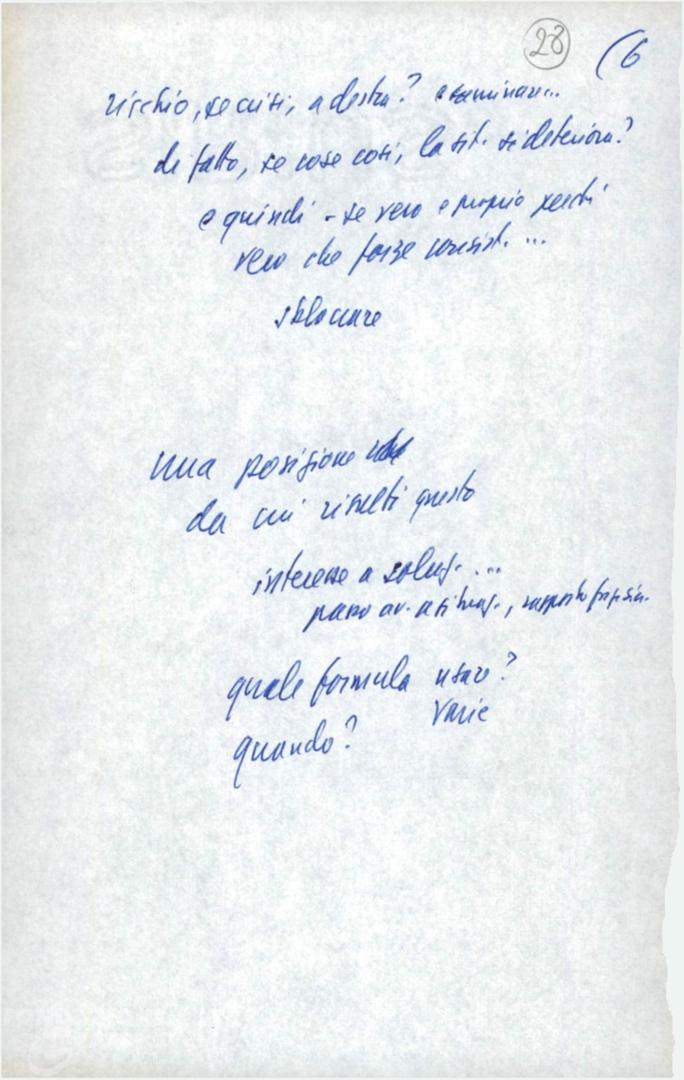 28 (6
rischio, se crisi, a destra? esaminare...
di fatto, se cose così, la sit. si deteriora?
e quindi - se vero e proprio perché
vero che forze consist. ...
sbloccare
una posizione
da cui risulti questo
interesse a soluz. ...
passo av. a situaz., rapporto
quale formula usare?
varie
quando?